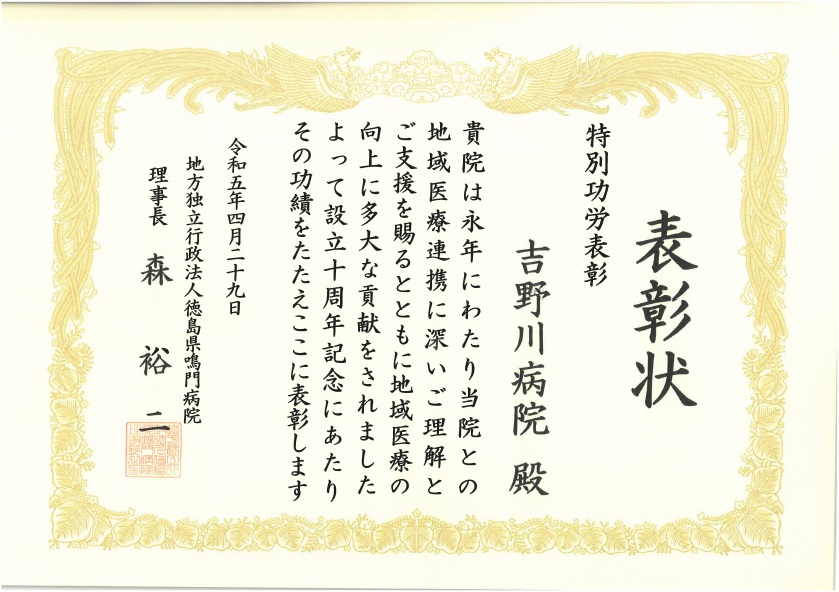 表彰状
特別功労表彰
吉野川病院 殿
貴院は永年にわたり当院との
地域医療連携に深いご理解と
ご支援を賜るとともに地域医療の
向上に多大な貢献をされました
よって設立十周年記念にあたり
その功績をたたえここに表彰します
令和五年四月二十九日
地方独立行政法人徳島県鳴門病院
理事長 森 裕二